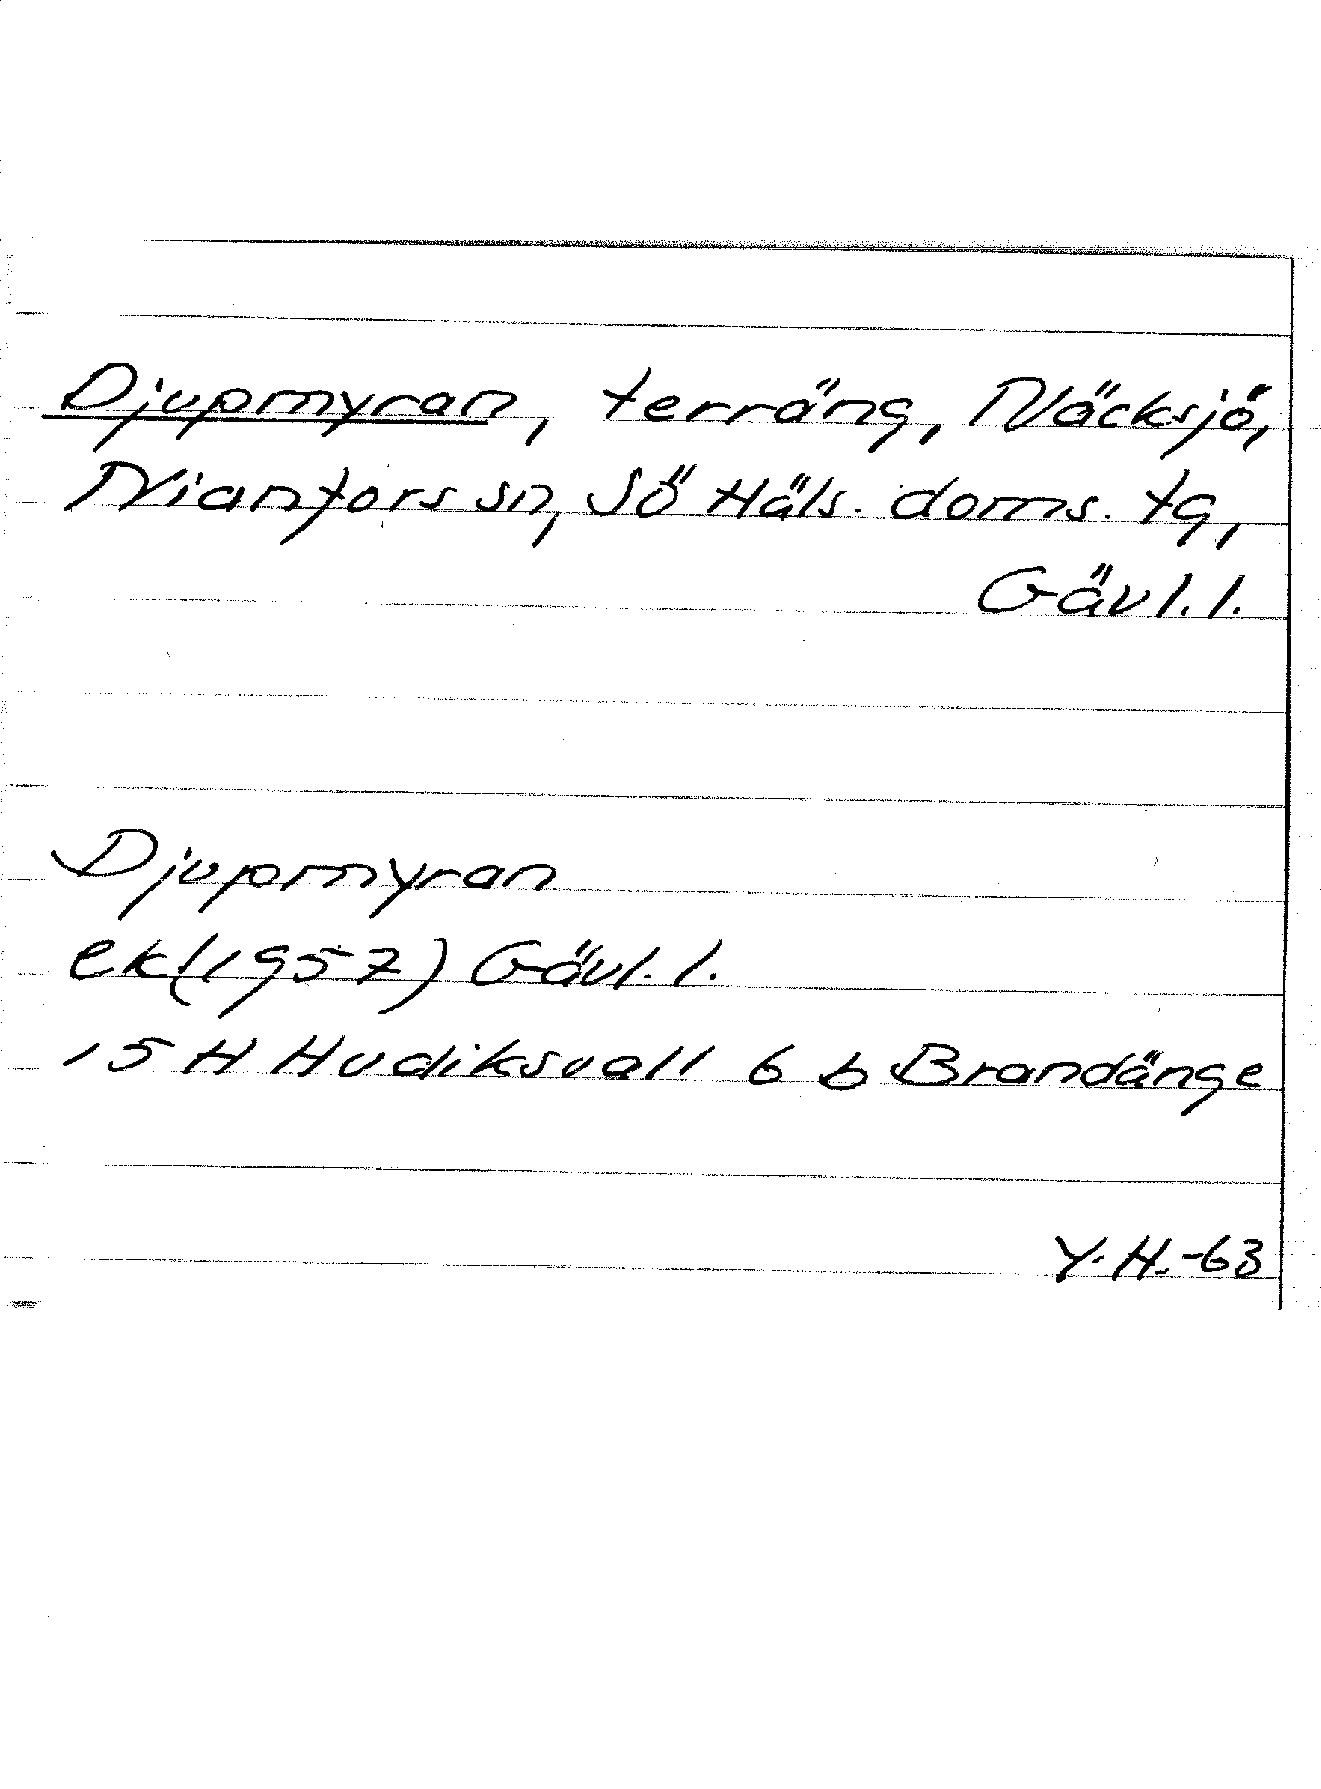 Djupmyran, terräng, Näcksjö,
Nianfors sn, Sö Häls. doms. tg,
Gävl. l.
Djupmyran
ek (1957) Gävl. l.
15 H Hudiksvall 6 b Brandänge
Y. H. -63